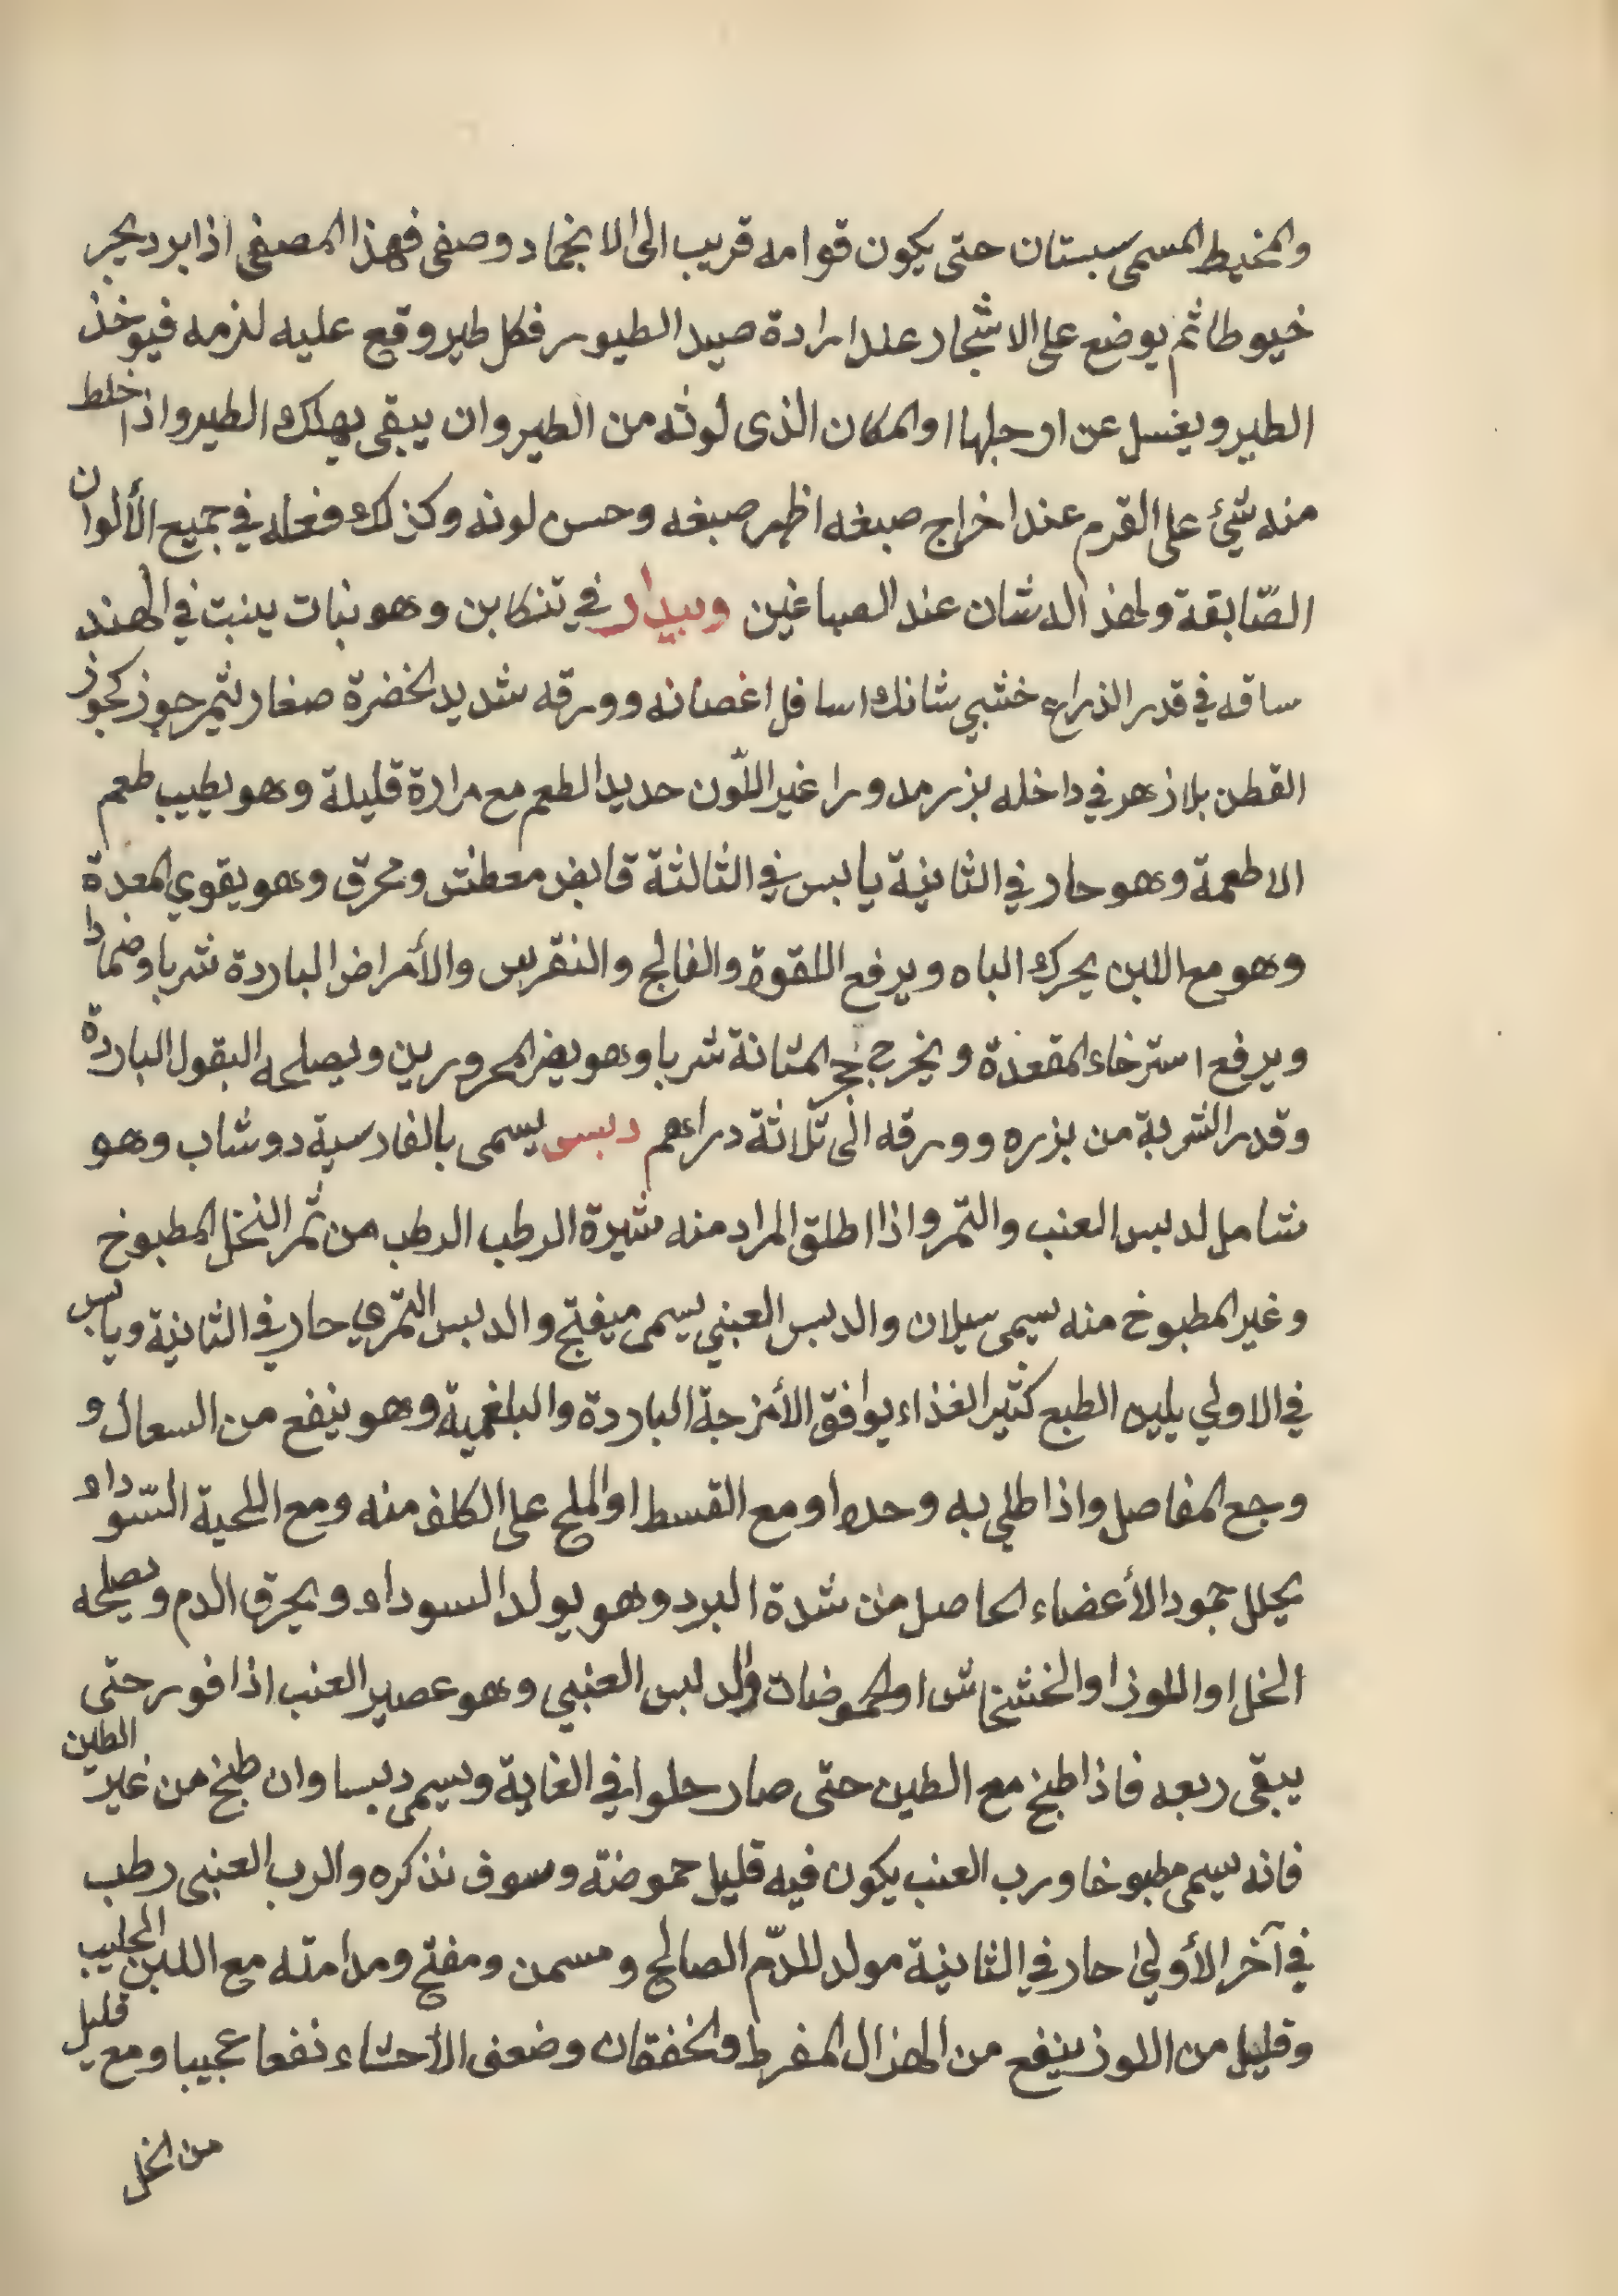 والمخيط المسمى سبستان حتى يكون قوامه قريب الى الانجماد وصفى فهذا المصفى اذا برد يجر
خيوطا ثم يوضع على الاشجار عند ارادة صيد الطيور فكل طير وقع عليه لزمه فيوخذ
الطير ويغسل عن ارجلها او المكان الذى لوثه من الطير وان يبقى يهلك الطير واذا خلط
منه شئ على القرم عند اخراج صبغه اظهر صبغه وحسن لونه وكذلك فعله في جميع الألوان
الصّابقة ولهذ اله شان عند الصباغين وبيدار في تنكابن وهو نبات ينبت في الهند
ساقه في قدر الذراع خشبي شانك اسافل اغصانه وورقه شديد الخضرة صغار لثمر جوز كجوز
القطن بلا زهر في داخله بزر مدور اغبر اللّون حديد الطعم مع مرارة قليلة وهو يطيب طعم
الاطعمة وهو حار في الثانية يابس في الثالثة قابض معطش ومحرق وهو يقوي المعدة
وهو مع اللبن يحرك الباه ويرفع اللقوة والفالج والنقرس والأمراض الباردة شربا وضمادا
ويرفع استرخاء المقعدة ويخرج المثانة شربا وهو يضر المحرورين ويصلحه البقول الباردة
وقدر الشربة من بزره وورقه الى ثلاثة دراهم دبس يسمى بالفارسية دوشاب وهو
شامل لدبس العنب والتمر واذا اطلق المراد منه شيرة الرطب الرطب من ثمر النخل المطبوخ
وغير المطبوخ منه يسمى سيلان والدبس العنبي يسمى ميفتج والدبس التمري حار في الثانية ويابس
في الاولي يلين الطبع كثير الغذاء يوافق الأمزجة الباردة والبلغمية وهو ينفع من السعال و
وجع المفاصل واذا طلي به وحده او مع القسط او الملح على الكلف منه ومع اللحية السّوداء
يحلل جمود الأعضاء الحاصل من شدة البرد وهو يولد السوداء ويحرق الدم ويصلحه
الخل او اللوز او الخشخاش او الحموضات والدبس العنبي وهو عصير العنب اذا فور حتى
يبقى ربعه فاذا طبخ مع الطين حتى صار حلوا في الغاية ويسمى دبسا وان طبخ من غير الطين
فانه يسمى مطبوخا ورب العنب يكون فيه قليل حموضة وسوف نذكره والرب العنبى رطب
في آخر الأولي حار في الثانية مولد للدّم الصالح ومسمن ومفتح ومدامته مع اللبن الحليب
وقليل من اللوز ينفع من الهزال المفرط والخفقان وضعف الأحشاء نفعا عجيبا ومع قليل
من الخل